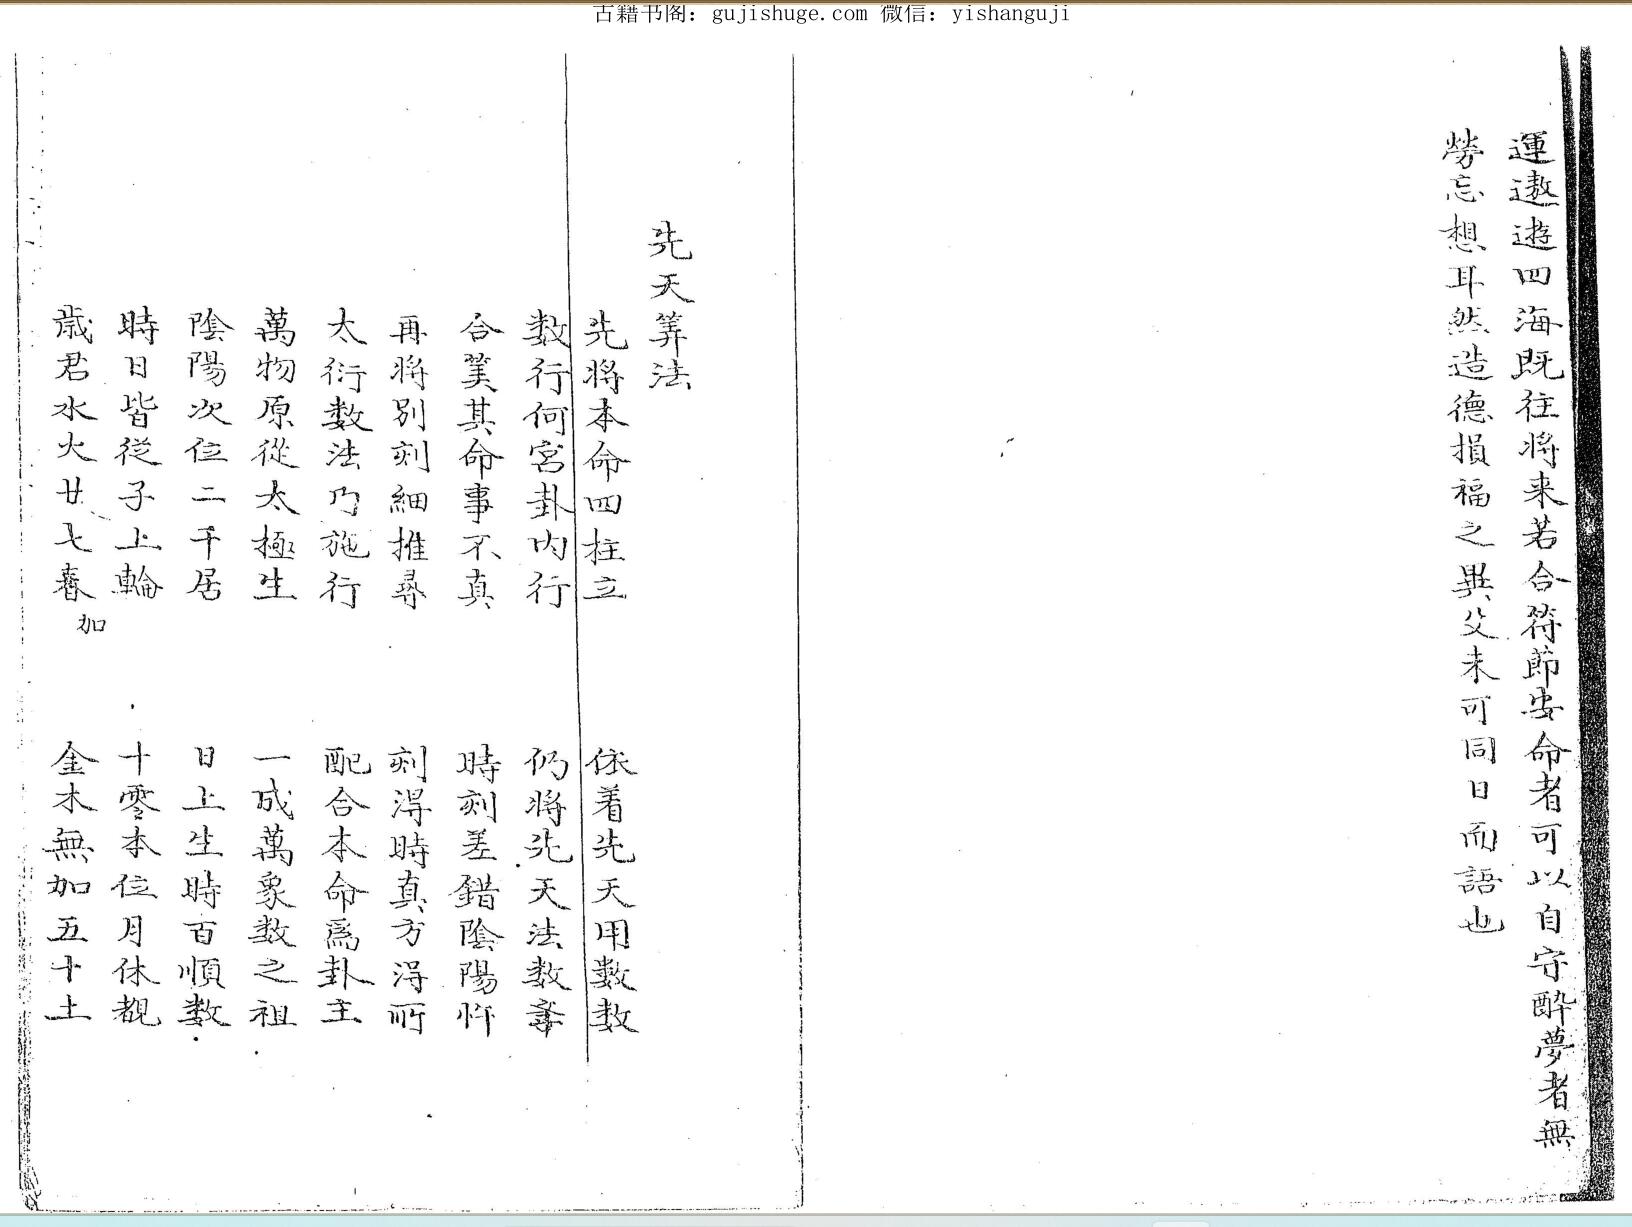 古籍书阁：gujishuge.com 微信：yishanguji
運遨遊四海既往將来若合符節安命者可以自守醉夢者無
勞忘想耳然造德損福之異父未可同日而語也
先天筭法
先將本命四柱立 依着先天用數数
数行何宮卦内行 仍將先天法数
合筭其命事不真 時刻差錯陰陽忤
再將别刻細推尋 刻得時真方得所
大衍數法乃施行 配合本命爲卦主
萬物原從太極生 一成萬象数之祖
陰陽次位二千居 日上生時百順数
時日皆從子上輪 十零本位月休覩
歳君水火廿七春加 金木無加五十土